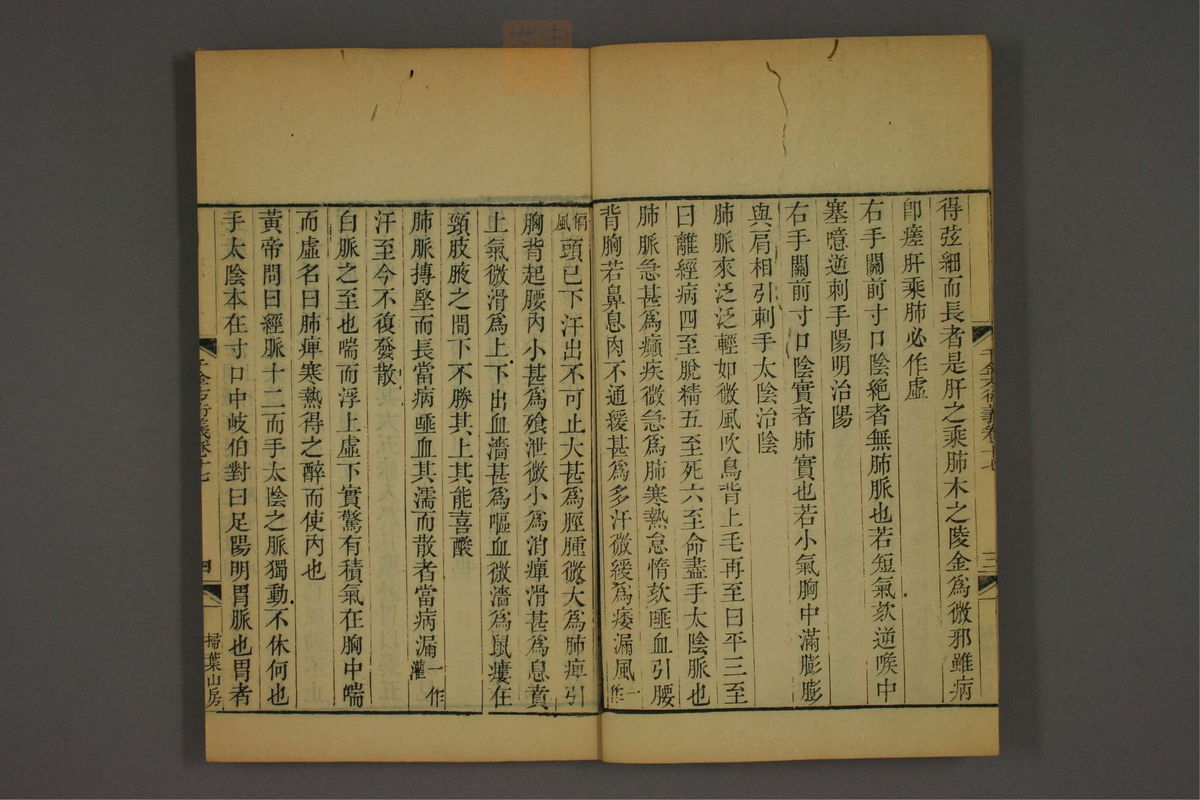 得弦細而長者是肝之乘肺木之陵金爲微邪雖病
卽瘥肝乘肺必作虛
右手關前寸口陰絕者無肺脈也若短氣欬逆喉中
塞噫逆刺手陽明治陽
右手關前寸口陰實者肺實也若小氣胸中滿膨膨
與肩相引刺手太陰治陰
肺脈來泛泛輕如微風吹鳥背上毛再至曰平三至
曰離經病四至脫精五至死六至命盡手太陰脈也
肺脈急甚爲癲疾微急爲肺寒熱怠惰欬唾血引腰
背胸若鼻息肉不通緩甚爲多汗微緩爲痿漏風一作
三
偏風頭已下汗出不可止大甚爲脛腫微大爲肺痺引
胸背起腰內小甚爲飱泄微小爲消癉滑甚爲息賁
上氣微滑爲上下出血濇甚爲嘔血微濇爲鼠瘻在
頸肢腋之間下不勝其上其能喜酸
肺脈搏堅而長當病唾血其濡而散者當病漏一作灌
汗至今不復發散
白脈之至也喘而浮上虛下實驚有積氣在胸中喘
而虛名曰肺痺寒熱得之醉而使內也
黃帝問曰經脈十二而手太陰之脈獨動不休何也
手太陰本在寸口中岐伯對曰足陽明胃脈也胃者
千金方衍義卷十七
四
掃葉山房